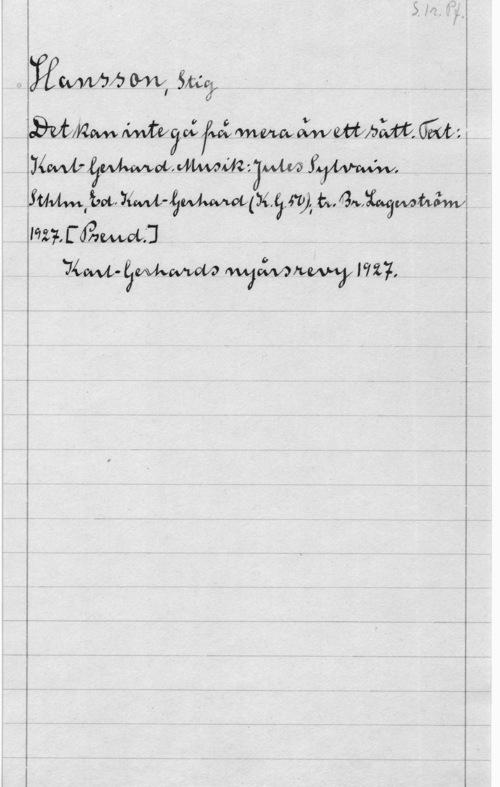 S. 1r. Pf.
Hansson, Stig
Det kan inte gå på mera än ett sätt. Text:
Karl-Gerhard. Musik: Jules Sylvain.
Sthlm, Ed. Karl-Gerhard (K.G 50), tr. Br. Lagerström
1927. [Pseud.]
Karl-Gerhards nyårsrevy 1927.